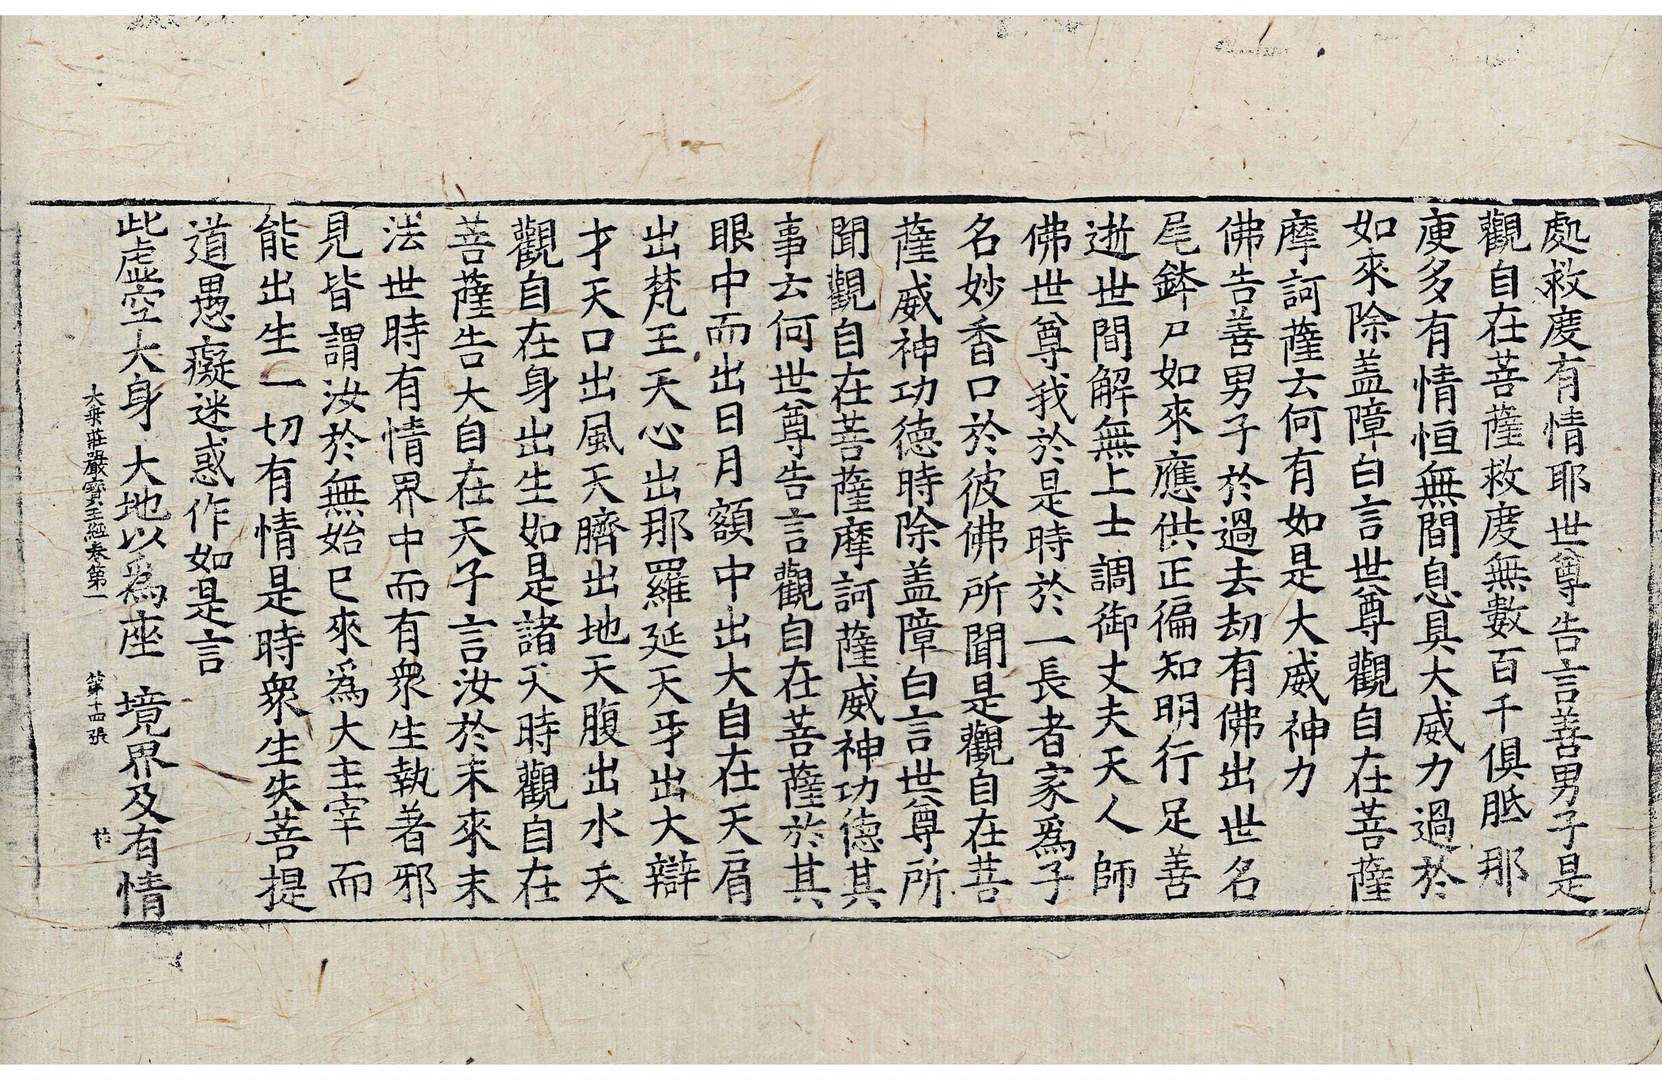 處救度有情耶世尊告言善男子是
觀自在菩薩救度無數百千俱胝那
庾多有情恒無間息具大威力過於
如來除盖障白言世尊觀自在菩薩
摩訶薩云何有如是大威神力
佛告善男子於過去劫有佛出世名
尾鉢尸如來應供正徧知明行足善
逝世間解無上士調御丈夫天人師
佛世尊我於是時於一長者家爲子
名妙香口於彼佛所聞是觀自在菩
薩威神功德時除盖障白言世尊所
聞觀自在菩薩摩訶薩威神功德其
事云何世尊告言觀自在菩薩於其
眼中而出日月額中出大自在天肩
出梵王天心出那羅延天牙出大辯
才天口出風天臍出地天腹出水天
觀自在身出生如是諸天時觀自在
菩薩告大自在天子言汝於未來末
法世時有情界中而有衆生執著邪
見皆謂汝於無始已來爲大主宰而
能出生一切有情是時衆生失菩提
道愚癡迷惑作如是言
此虛空大身 大地以爲座 境界及有情
大乘莊嚴寶王經卷第一 第十四張